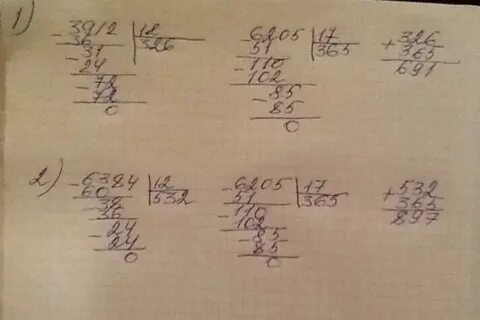 1)
3912 | 12
36 | 326
31
24
72
72
0
6205 | 17
51 | 365
110
102
85
85
0
+ 326
365
691
2)
6384 | 12
60 | 532
38
36
24
24
0
6205 | 17
51 | 365
110
102
85
85
0
+ 532
365
897